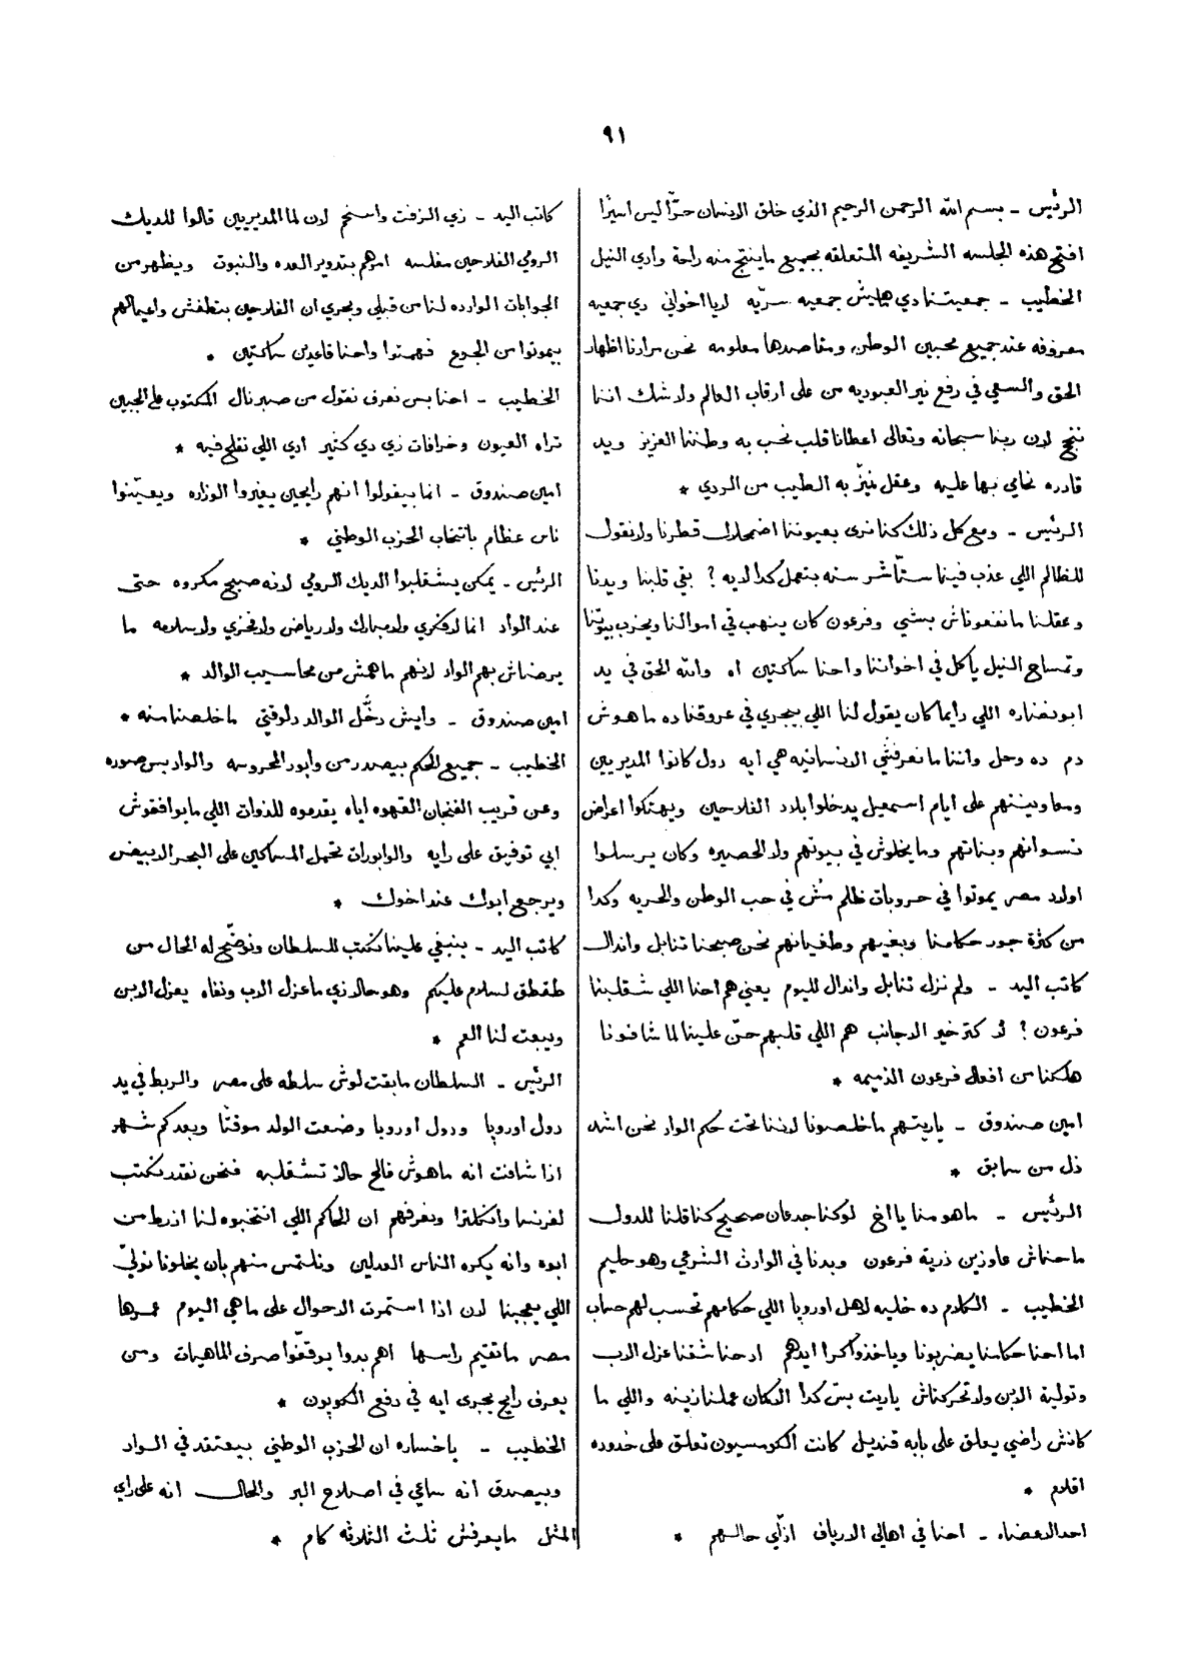 ٩١
الرئيس ـ بسم الله الرحمن الرحيم الذي خلق الانسان حرّا ليس اسيرًا
افتح هذه الجلسه الشريفه المتعلقه بجميع ماينتج منه راحة وادي النيل
الخطيب ـ جمعيتنا دي هليش جمعيه سرّيه لايا اخواني دي جمعيه
معروفه عند جميع محبين الوطن ومقاصدها معلومه نحن مرادنا اظهار
الحق والسعي في رفع نير العبوديه من على ارقاب العالم ولاشك اننا
ننجح لان ربنا سبحانه وتعالى اعطانا قلب نحب به وطننا العزيز ويد
قادره نحامي بها عليه وعقل نميّز به الطيب من الردي *
الرئيس ـ ومع كل ذلك كنا نرى بعيوننا اضمحلال قطرنا ولانقول
للظالم اللي عذب فينا ستّاشر سنه بتعمل كدا لايه ؟ بقي قلبنا ويدنا
وعقلنا مانفعوناش بشي وفرعون كان ينهب في اموالنا ويخرب بيوتنا
وتمساح النيل ياكل في اخواننا واحنا ساكتين اه والله الحق في يد
ابونضاره اللي دايما كان يقول لنا اللي بيجري في عروقنا ده ماهوش
دم ده وحل واننا مانعرفشي الانسانيه هي ايه دول كانوا المديريين
ومعاوينيتهم على ايام اسمعيل يدخلوا بلاد الفلاحين ويهتكوا اعراض
نسوانهم وبناتهم ومايخلوش في بيوتهم ولا الحصيره وكان يرسلوا
اولاد مصر يموتوا في حروبات ظلم مش في حب الوطن والحريه وكدا
من كثرة جور حكامنا وبغيهم وطغيانهم نحن صبحنا تنابل واندال
كاتب اليد ـ ولم نزل تنابل واندال لليوم يعني هم احنا اللي شقلبنا
فرعون ؟ لا كتر خير الاجانب هم اللي قلبهم حنّ علينا لما شافونا
هلكنا من افعال فرعون الذميمه *
امين صندوق ـ ياريتهم ماخلصونا لاننا تحت حكم الواد نحن اشد
ذل من سابق *
الرئيس ـ ماهو منا يا اخ لوكنا جدعان صحيح كنا قلنا للدول
ماحناش عاوزين ذرية فرعون وبدنا في الوارث الشرعي وهو حليم
الخطيب ـ الكلام ده خليه لاهل اوروپا اللي حكامهم تحسب لهم حساب
اما احنا حكامنا يضربونا وياخذوا كرا ايدهم اد حنا شفنا عزل الاب
وتولية الابن ولاتحركناش ياريت بسّ كدا الاكان عملنا زينه واللي ما
كانش راضي يعلق على بابه قنديل كانت الكومسيون تعلق على خدوده
اقلام *
احد الاعضاء ـ احنا في اهالي الارياف ازّاي حالهم *
كاتب اليد ـ زي الزفت واسخم لان لما المديريين قالوا للديك
الرومي الفلاحين مفلسه امرهم بتدوير العده والنبوت ويظهر من
الجوابات الوارده لنا من قبلي وبحري ان الفلاحين بتطفش واعيالهم
بيموتوا من الجوع فهمتوا واحنا قاعدين ساكتين *
الخطيب ـ احنا بس نعرف نقول من صبر نال المكتوب على الجبين
تراه العيون وخرافات زي دي كثير ادي اللي نفلح فيه *
امين صندوق ـ انما بيقولوا انهم رايحين يغيروا الوزاره ويعيّنوا
ناس عظام بانتخاب الحزب الوطني *
الرئيس ـ يمكن يشقلبوا الديك الرومي لانه صبيح مكروه حتى
عند الواد انما لا فكري ولا مبارك ولا رياض ولا فخري ولا سلامه ما
يرضاش بهم الواد لانهم ماهمش من محاسيب الوالد *
امين صندوق ـ وايش دخّل الوالد دلوقتي ماخلصنا منه *
الخطيب ـ جميع الحكم بيصدر من وابور المحروسه والواد بس صوره
وعن قريب الفنجان القهوه اياه يقدموه للذوات اللي مابوافقوش
ابي توفيق على رايه والوابورات تحمل المساكين على البحر الابيض
ويرجع ابوك عند اخوك *
كاتب اليد ـ ينبغي علينا نكتب للسلطان ونوضّح له الحال من
طقطق لسلام عليكم وهو حالا زي ماعزل الاب ونفاه يعزل الابن
ويبعت لنا العم *
الرئيس ـ السلطان مابقت لوش سلطه على مصر والربط في يد
دول اوروپا ودول اوروبا وضعت الولد موقتًا وبعد كم شهر
اذا شافت انه ماهوش فالح حالا تشقلبه فنحن نقدر نكتب
لفرنسا وانكلترا ونعرفهم ان الحاكم اللي انتخبوه لنا ازرط من
ابوه وانه يكره الناس العدلين ونلتمس منهم بان يخلونا نولّي
اللي يعجبنا لان اذا استمرت الاحوال على ماهي اليوم عمرها
مصر ماتقيم راسها اهم بدوا يوقّفوا صرف الماهيات ومن
يعرف رايح يجرى ايه في دفع الكوبون *
الخطيب ـ ياخساره ان الحزب الوطني بيعتقد في الواد
وبيصدق انه ساعي في اصلاح البر والحال انه على راي
المثل مايعرفش ثلث الثلاثه كام *